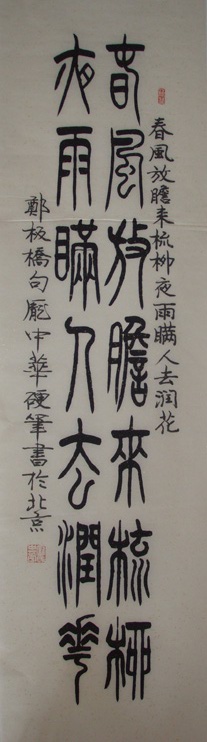 春風放膽来梳柳夜雨瞒人去润花
春風放膽來梳柳
夜雨瞞人去潤華
鄭板橋句龐中華硬筆書於北京